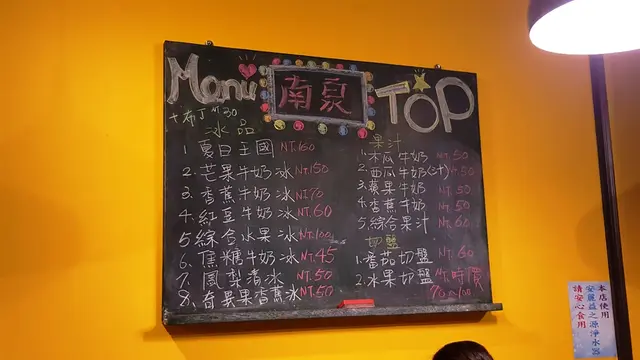 Manu
南泉
TOP
+布丁NT30
冰品
1 夏日王國 NT.160
2. 芒果牛奶冰 NT.150
3. 香蕉牛奶冰 NT.70
4. 紅豆牛奶冰 NT.60
5 綜合水果冰 NT.100
6. 焦糖牛奶冰 NT.45
7. 鳳梨清冰 NT.50
8. 奇異果香蕉冰 NT.50
果汁
1. 木瓜牛奶 NT.50
2. 西瓜牛奶(汁) 50
3. 蘋果牛奶 NT.50
4. 香蕉牛奶 NT.50
5. 綜合果汁 NT.60
切盤
1. 番茄切盤 NT.60
2. 水果切盤 NT.時價
70~100
本店使用
安麗益之源淨水器
請安心食用